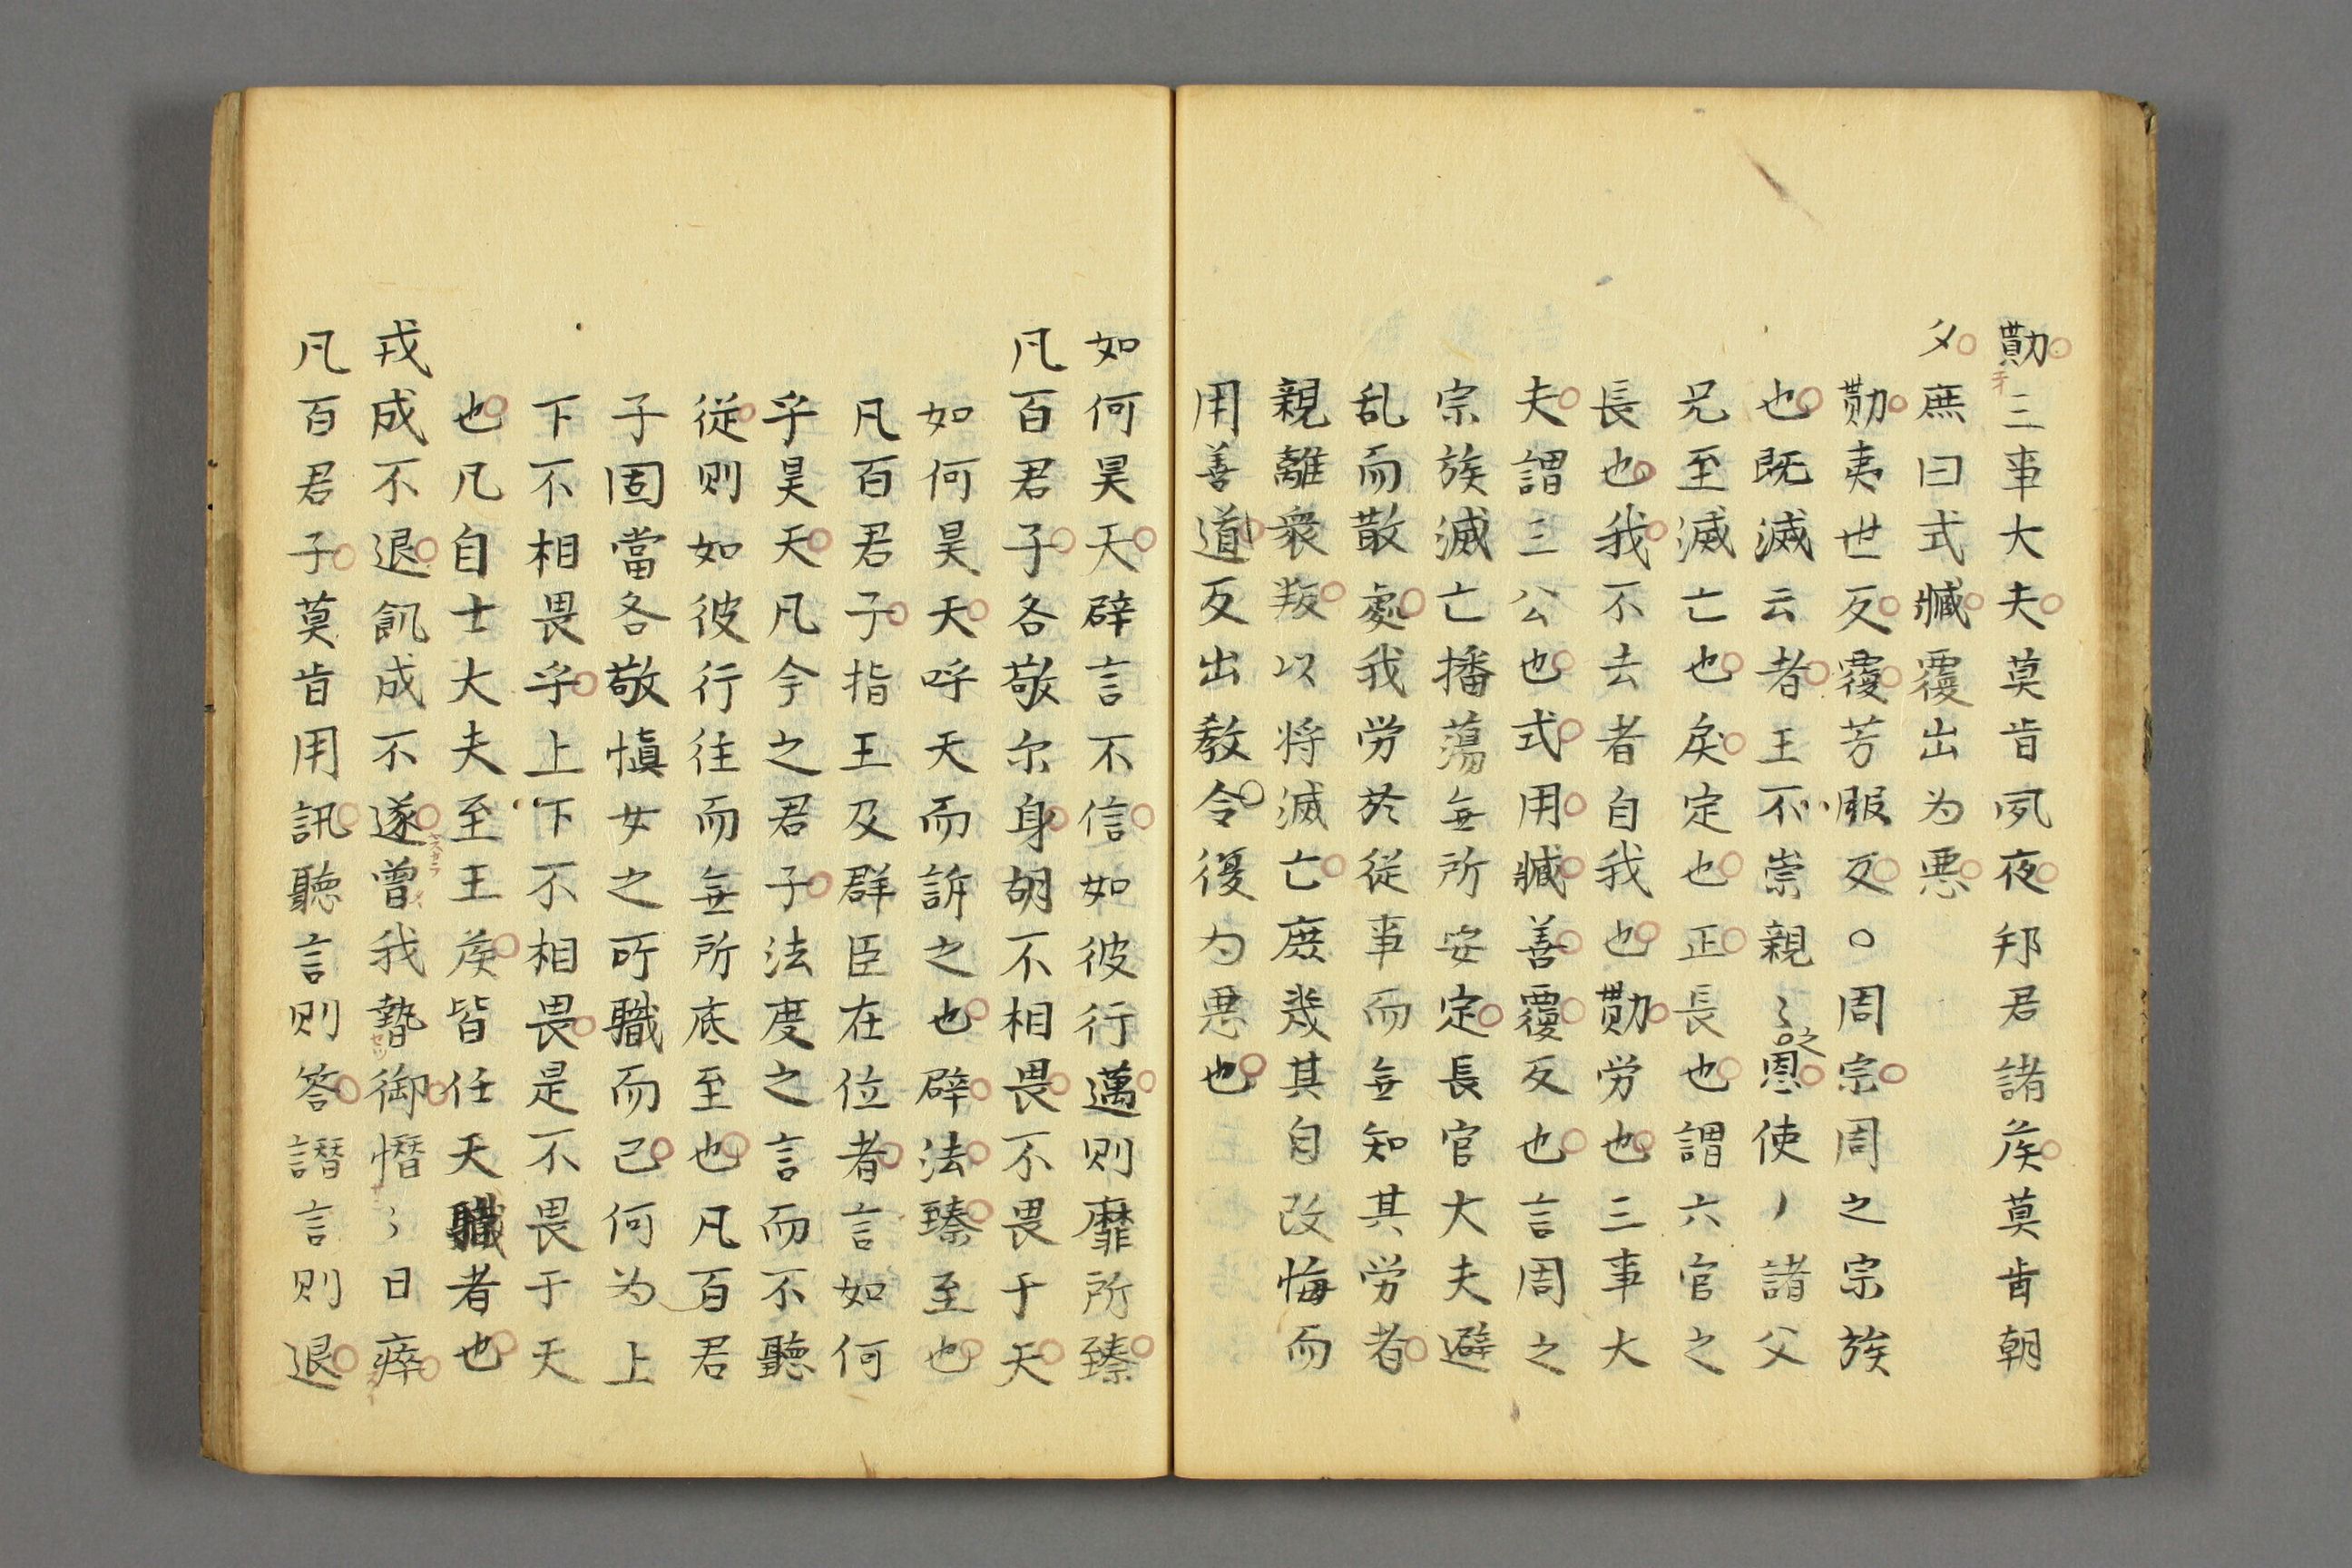 勩三事大夫莫肯夙夜邦君諸矦莫肯朝
夕庶曰式臧覆出为悪
勩夷世反覆芳服反○周宗周之宗族
也既滅云者王不崇親〻之恩使〻諸父
兄至滅亡也戾定也正長也謂六官之
長也我不去者自我也勩労也三事大
夫謂三公也式用臧善覆反也言周之
宗族滅亡播蕩無所安定長官大夫避
乱而散處我労於従事而無知其労者
親離衆叛以将滅亡庶幾其自改悔而
用善道反出教令復为悪也
如何昊天辟言不信如彼行邁則靡所臻
凡百君子各敬尔身胡不相畏不畏于天
如何昊天呼天而訴之也辟法臻至也
凡百君子指王及群臣在位者言如何
乎昊天凡今之君子法度之言而不聽
従則如彼行往而無所底至也凡百君
子固當各敬愼女之所職而已何为上
下不相畏乎上下不相畏是不畏于天
也凡自士大夫至王矦皆任天職者也
戎成不退飢成不遂曾我暬御憯〻日瘁
凡百君子莫肯用訊聽言則答譖言則退